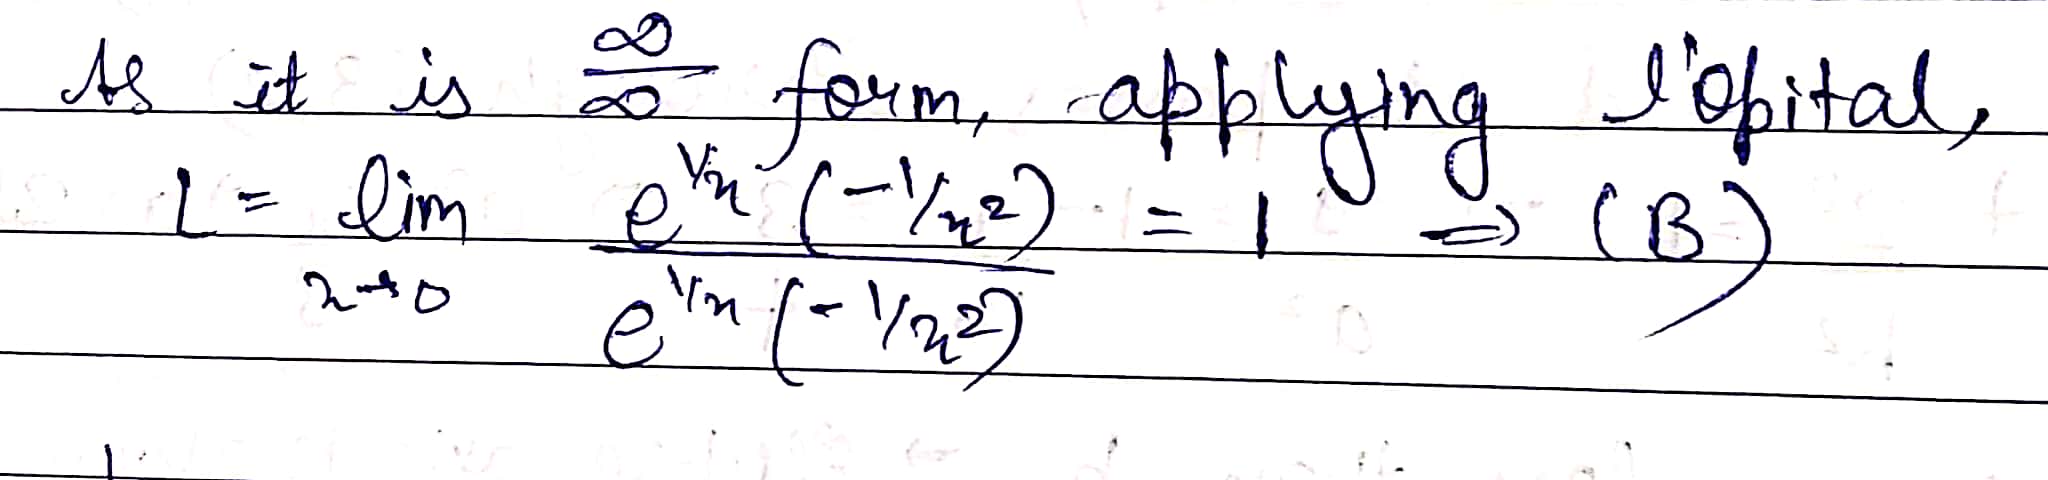 As it is ∞/∞ form, applying l'opital,
L = lim x→0 e^1/x (-1/x²) / e^1/x (-1/x²) = 1 ⇒ (B)